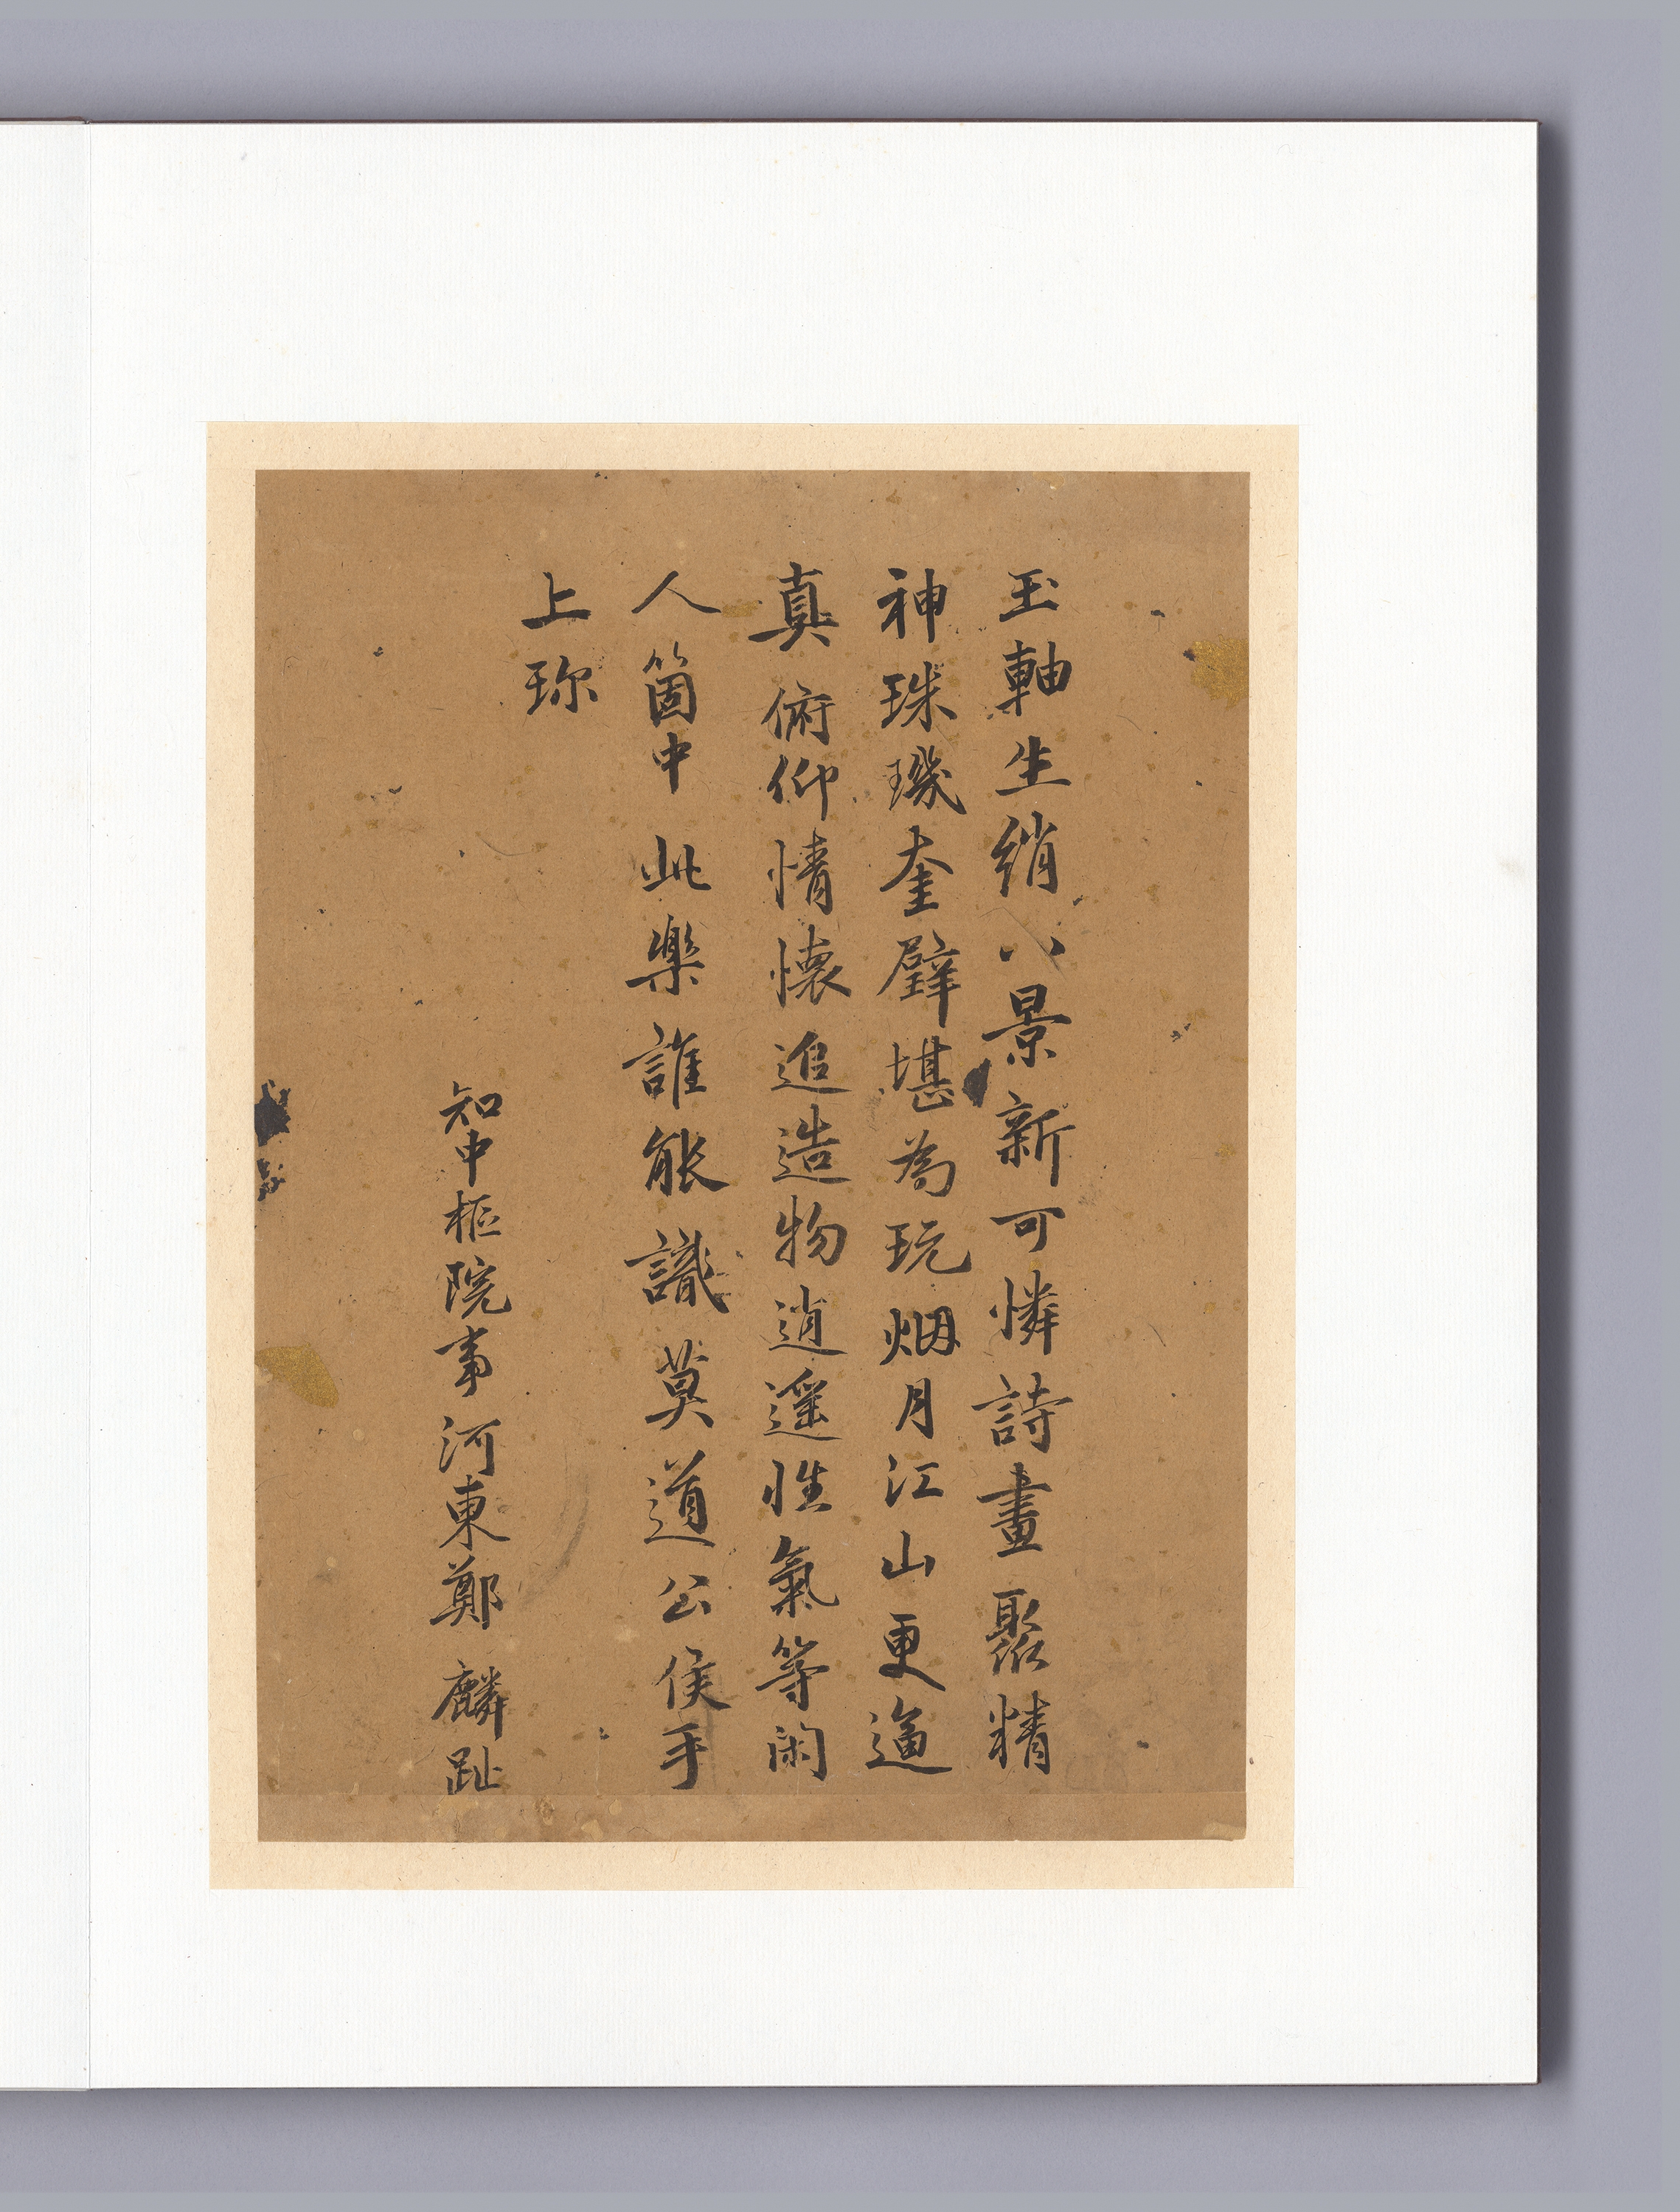 玉軸生綃八景新可憐詩畫聚精
神珠璣奎璧堪為玩烟月江山更逼
真俯仰情懷追造物逍遥性氣等闲
人箇中此樂誰能識莫道公侯手
上珎
知中樞院事河東鄭麟趾